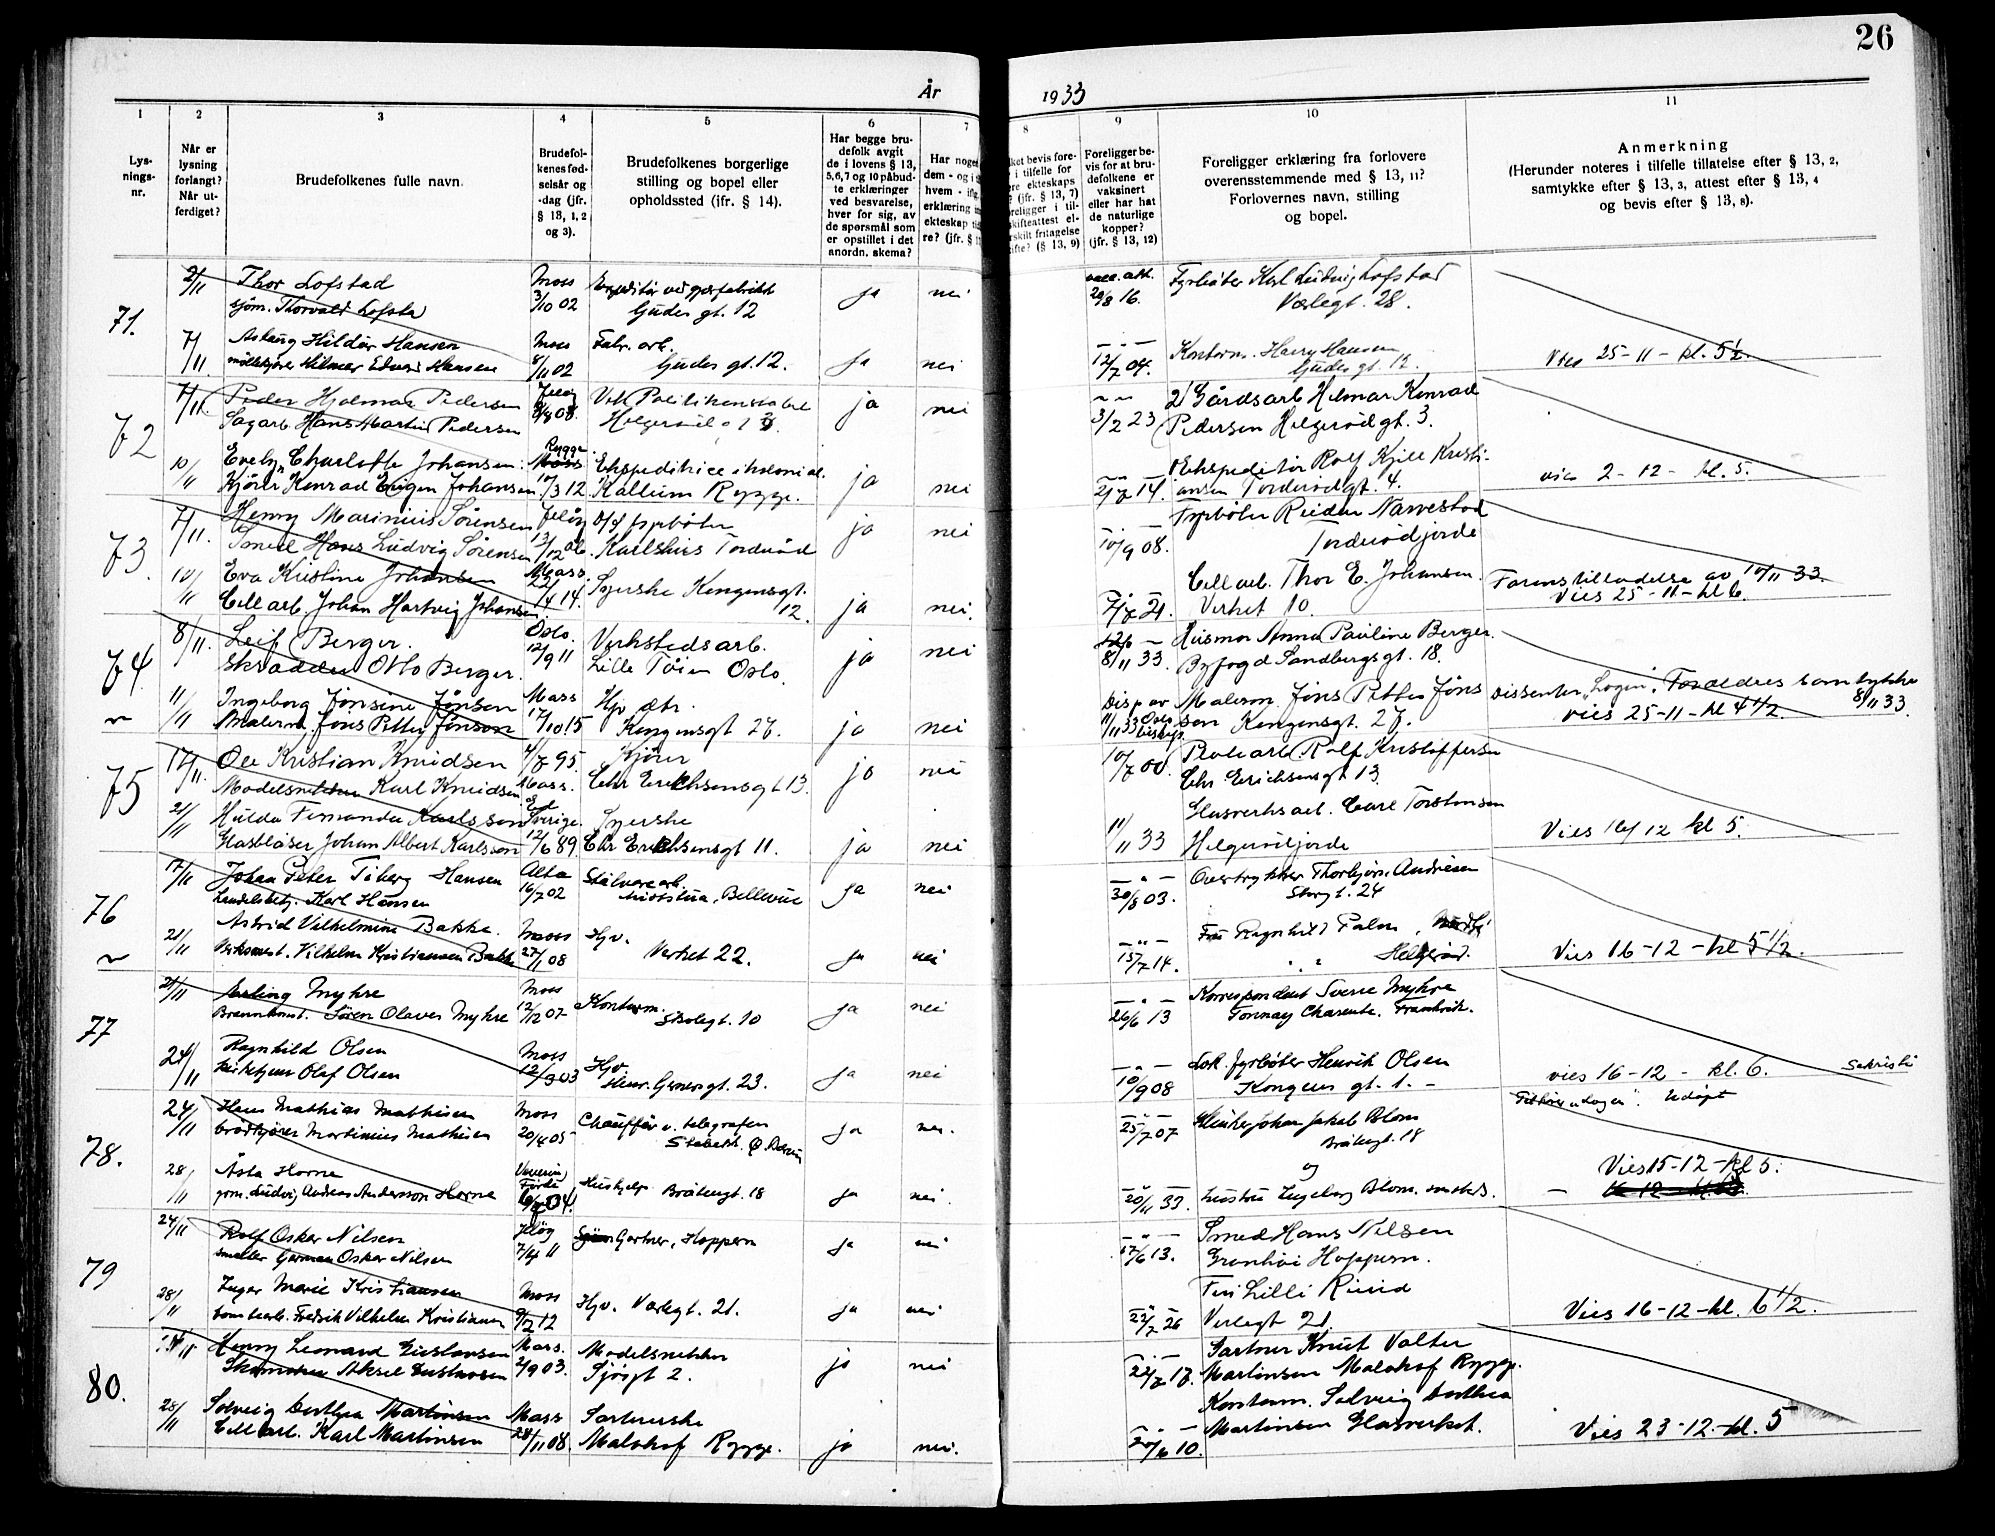 26
År 1933
1 2 3 4 5 6 7 8 9 10 11
Lys-
nings-
nr.
Når er
lysning
forlangt?
Når ut-
ferdiget?
Brudefolkenes fulle navn.
Brudefol-
kenes fød-
selsår og
-dag (jfr.
§ 13, 1, 2
og 3).
Brudefolkenes borgerlige
stilling og bopel eller
opholdssted (ifr. § 14).
Har begge bru-
defolk avgit
de i lovens § 13,
5,6,7 og 10 påbud-
te erklæringer
ved besvarelse,
hver for sig, av
de spørsmål som
er opstillet i det
anordn. skema?
Har noge
dem - og i
hvem - ifø
erklæring
ekteskap ti
re? (jfr. §
ket bevis fore-
i tilfelle for
re ekteskaps
? (jfr. § 13, 7)
religger i til-
skifteattest el-
rskilt fritagelse
ifte? (§ 13, 9)
Foreligger be-
vis for at bru-
defolkene er
vaksinert
eller har hat
de naturlige
kopper?
(jfr. § 13, 12)
Foreligger erklæring fra forlovere
overensstemmende med § 13, 11?
Forlovernes navn, stilling
og bopel.
Anmerkning
(Herunder noteres i tilfelle tillatelse efter § 13, 2,
samtykke efter § 13, 3, attest efter § 13, 4
og bevis efter § 13, 8).
71. 2/11 Thor Lofstad Moss 3/10 02 ja nei 29/8 16. Fyrbøter Karl Ludvig Lofstad
sjøm. Thorvald Lofstad Gudes gt. 12 Værlegt. 28.
7/11 Asbjørg Hildur Hansen Moss 8/11 02 Fabr. arb. ja nei 12/7 04. Kontorm. Harry Hansen Vies 25-11-kl. 5½.
møllekjører Hilmar Edvard Hansen Gudes gt. 12. Gudes gt. 12.
72 7/11. Peder Hjalmar Pedersen Jeløy 08. ja nei 3/2 23 Gårdsarb Hilmar Konrad
Sagarb. Hans Martin Pedersen Pedersen Helgerødgt. 3.
10/11 Evelyn Charlotte Johansen. Rygge 10/3 12 Ekspeditrice i kolonial. ja nei 2/7 14. Ekspeditør Rolf Kjell Kristi- vies 2-12- kl. 5.
Kjører Konrad Eugen Johansen Kallum Rygge. ansen Torderødgt. 4.
73. 7/11. Henry Marinius Sørensen Jeløy 13/12 fyrbøter ja nei 10/9 08. Fyrbøter Reidar Narvestad
Smed Hans Ludvig Sørensen Karlshus Torderød Torderødjorde
10/11 Eva Kristine Johansen Moss. 22/1 14. Syerske Kongensgt. ja nei. 21. Cell arb. Thor E. Johansen. Farens tilladelse av 10/11 33.
Cell arb. Johan Hartvig Johansen. 12. Verket 10. Vies 25-11-kl 6.
74. 8/11 Leif Berger. Oslo. 12/9 11 Verkstedsarb. ja nei 8/11 33. Husmor Anna Pauline Berger.
Skrædder Otto Berger. Lille Tøien Oslo. Byfogd Sandbergsgt. 18.
11/11 Ingeborg Jonsine Jønsen Moss 17/10 15 Hj. dtr. ja nei Disp av Malerm. Jøns Petter Jøns Dissenter „Logen". Foreldres samtykke 8/11 33.
Malerm. Jøns Petter Jønson Kongensgt 27. 11/11 33 son Kongensgt. 27. vies 25-11-kl 4½.
75 17/11. Ole Kristian Knudsen 4/7 95. Kjører ja nei 10/7 00. Rolf Kristoffersen
Modelsnekker Karl Knudsen Moss. Chr Erichsensgt 13. Chr Erichsensgt 13.
21/11 Hulda Fernanda Karlsson Ed Sverige. 12/6 89. Syerske ja nei 11/11 33 Glasverksarb. Carl Torstensen Vies 16/12 kl 5.
Glasblåser Johan Albert Karlsson Chr Erichsensgt 11. Helgerødjorde
76 17/11 Johan Peter Tiberg Hansen Alta 16/7 02 Stålvarearb. ja nei 30/8 03. Overtrykker Thorbjørn Andresen
Karl Hansen Bellevue Storgt. 24
21/11 Astrid Vilhelmine Bakke. Moss 27/1 08 Hjv. ja nei 15/7 14. Fru Ragnhild Palm, Vies 16-12-kl 5½.
Verksmest. Vilhelm Kristiansen Bakke Verket 22. Helgerød.
77 21/11 Erling Myhre Moss 12/12 07 Kontorm. ja nei 26/6 13 Korrespondent Sverre Myhre
Brannkonst. Søren Olaves Myhre Skolegt. 10 Tonnay Charente. Frankrik.
24/11 Ragnhild Olsen Moss 12/3 03 Hjv. ja nei 10/9 08 Lok. fyrbøter Henrik Olsen vies 16-12- kl. 6. Sakristi
Olaf Olsen Henr. Gernersgt. 23. Kongens gt. 1.-
78. 24/11 Hans Mathias Mathisen Moss 20/4 05 Chauffør v. telegrafen ja nei. 25/7 07 Johan Jakob Blom Udøpt
brødkjører Martinius Mathisen Stabekk. Bråtengt. 18
28/11 Åsta Horne Førde 04. Hushjelp Bråtengt. 18 ja nei. og Vies 15-12-kl 5.
gm. Ludvig Andreas Andersson Horne 20/11 33. hustru Ingeborg Blom. smstds.
79 24/11 Rolf Oskar Nilsen Jeløy 7/4 11 Gartner, Hoppern ja nei 17/6 13. Smed Hans Nilsen
Oskar Nilsen Grønlid Hoppern.
28/11 Inger Marie Kristiansen Moss 9/2 12 Hjv. Værlegt. 21. ja nei 22/7 26 Fru Lilli Ruud Vies 16-12-kl. 6½.
Fredrik Vilhelm Kristiansen Værlegt 21.
80. Henry Leonard Gustavsen Moss. 2/9 03. Modelsnekker ja nei 22/7 17. Sartour Knut Valter
Skomaker Aksel Gustavsen Sjøgt 2. Martinsen Malakof Rygge.
28/11 Solveig Dorthea Martinsen Moss 28/11 08. Malakof Rygge. ja nei. 20/6 10. Kontorm. Solveig Dorthea
Cell arb. Karl Martinsen Martinsen Glasverket. Vies 23-12-kl. 5